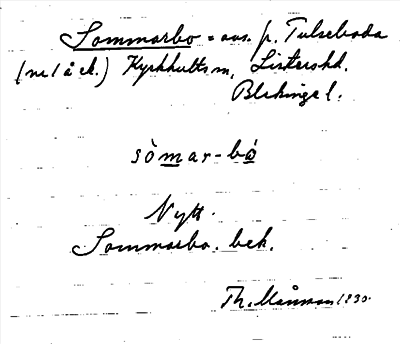 Sommarbo = avs. p. Tulseboda
(nr 1 å ek.) Kyrkhults sn, Listers hd.
Blekinge l.
sòmar-bó
Nytt.
Sommarbo. bek.
Th. Månsson 1930.